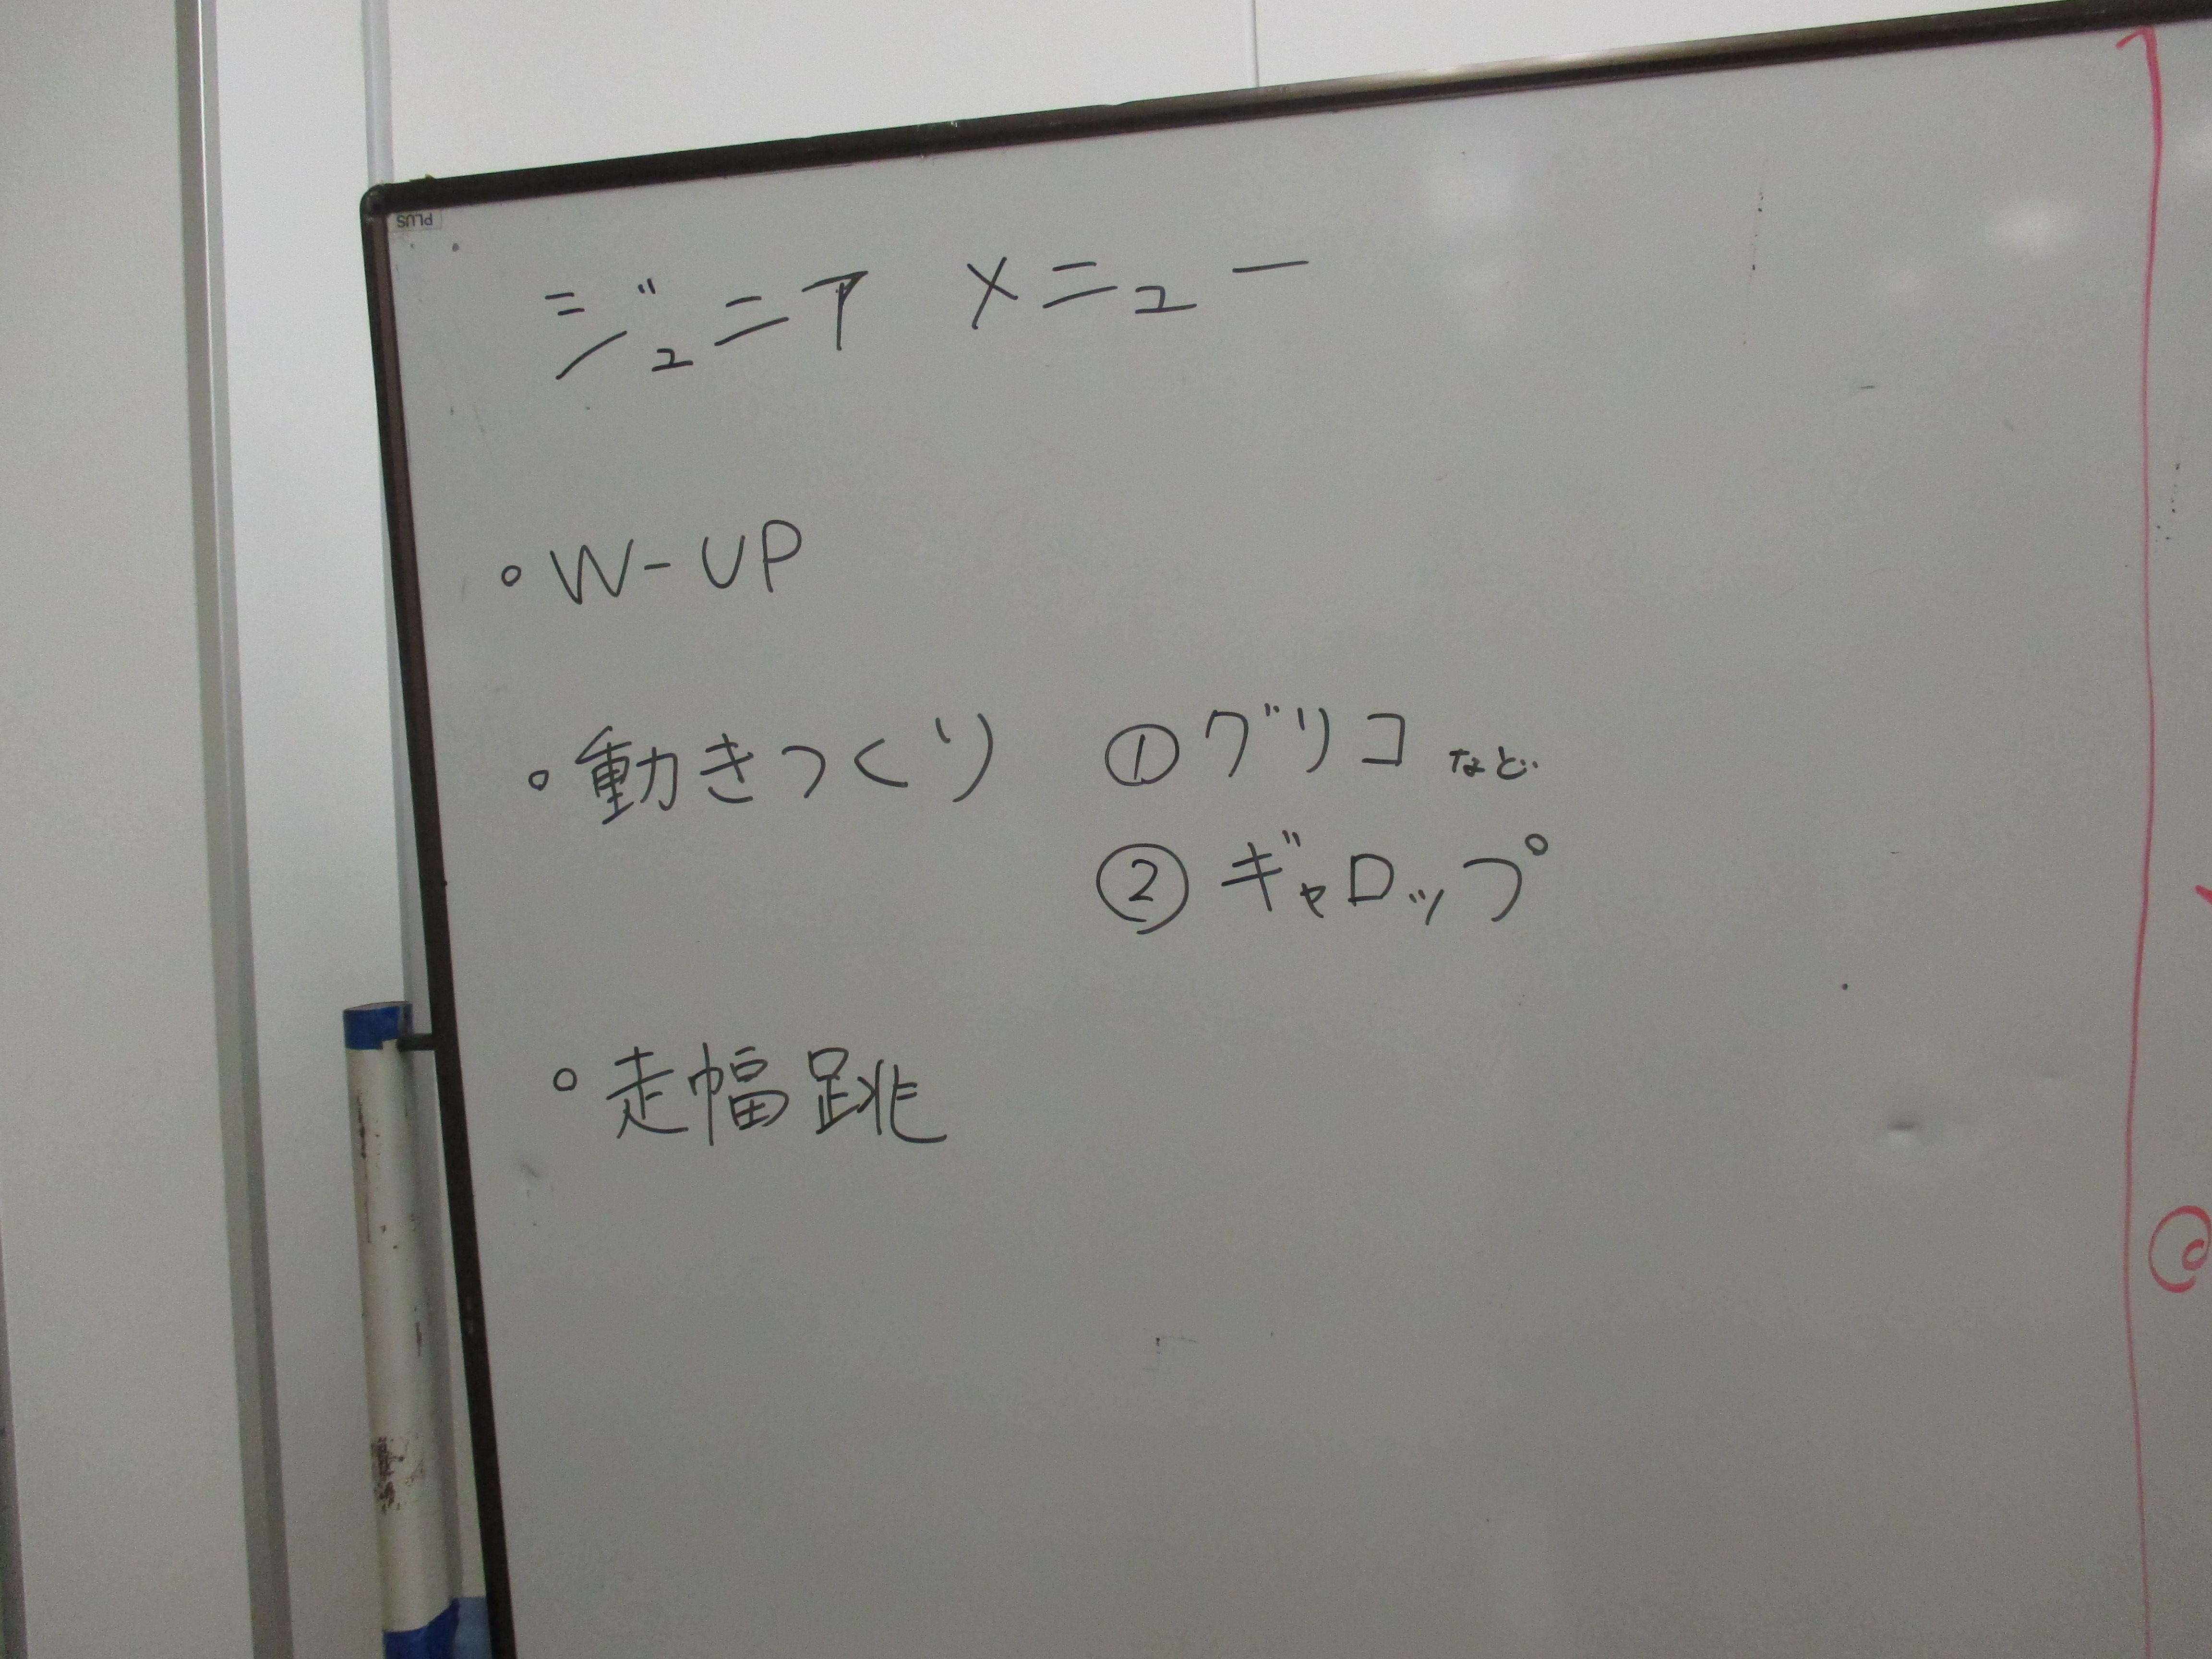 PLUS
ジュニア メニュー
。W-UP
。動きつくり ①グリコ など
②ギャロップ
。走幅跳